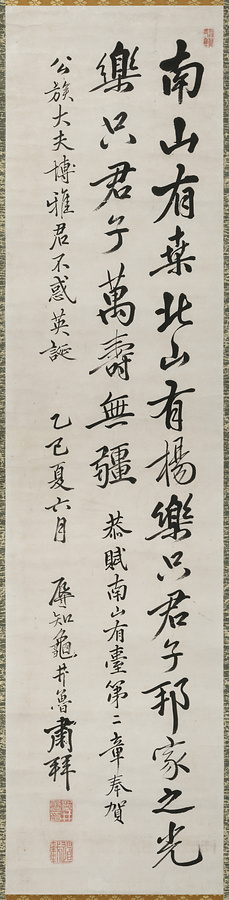 南山有桒北山有楊樂只君子邦家之光
樂只君子萬壽無疆 恭賦南山有臺第二章奉賀
公族大夫博雅君不惑英誕 乙巳夏六月 辱知龜井魯肅拜